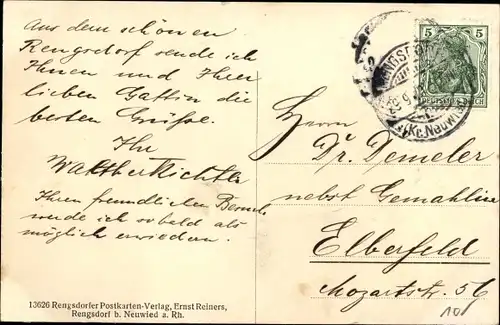 Aus dem schönen
Rengsdorf sende ich
Ihnen und Ihrer
lieben Gattin die
besten Grüße.
Ihr
Walther Richter
Ihren freundlichen Besuch
werde ich sobald als
möglich erwiedern.
13626 Rengsdorfer Postkarten-Verlag, Ernst Reiners,
Rengsdorf b. Neuwied a. Rh.
5 5
DEUTSCHES REICH
RENGSDORF
(Kr. Neuwied)
Herrn
Dr. Demeler
nebst Gemahlin
Elberfeld
Mozartstr. 56
10